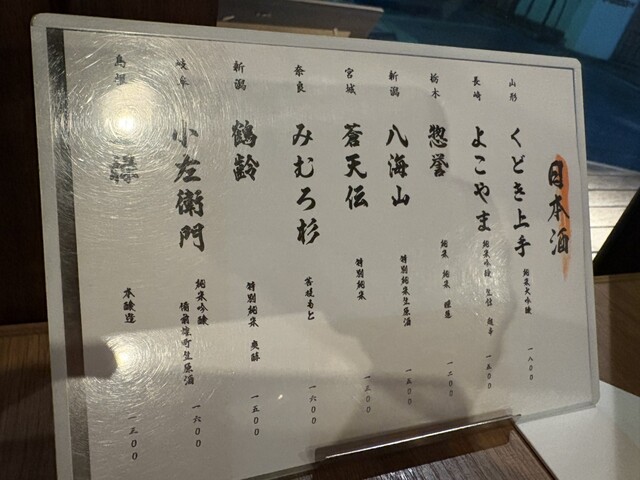 日本酒
山形 くどき上手 純米大吟醸 一八〇〇
長崎 よこやま 純米吟醸 生仕 超辛 一五〇〇
栃木 惣誉 純米 醸 一二〇〇
新潟 八海山 特別純米生原酒 一五〇〇
宮城 蒼天伝 特別純米 一三〇〇
奈良 みむろ杉 菩提もと 一六〇〇
新潟 鶴齢 特別純米 爽醇 一五〇〇
岐阜 小左衛門 純米吟醸 備前雄町生原酒 一六〇〇
島根 本醸造 一三〇〇